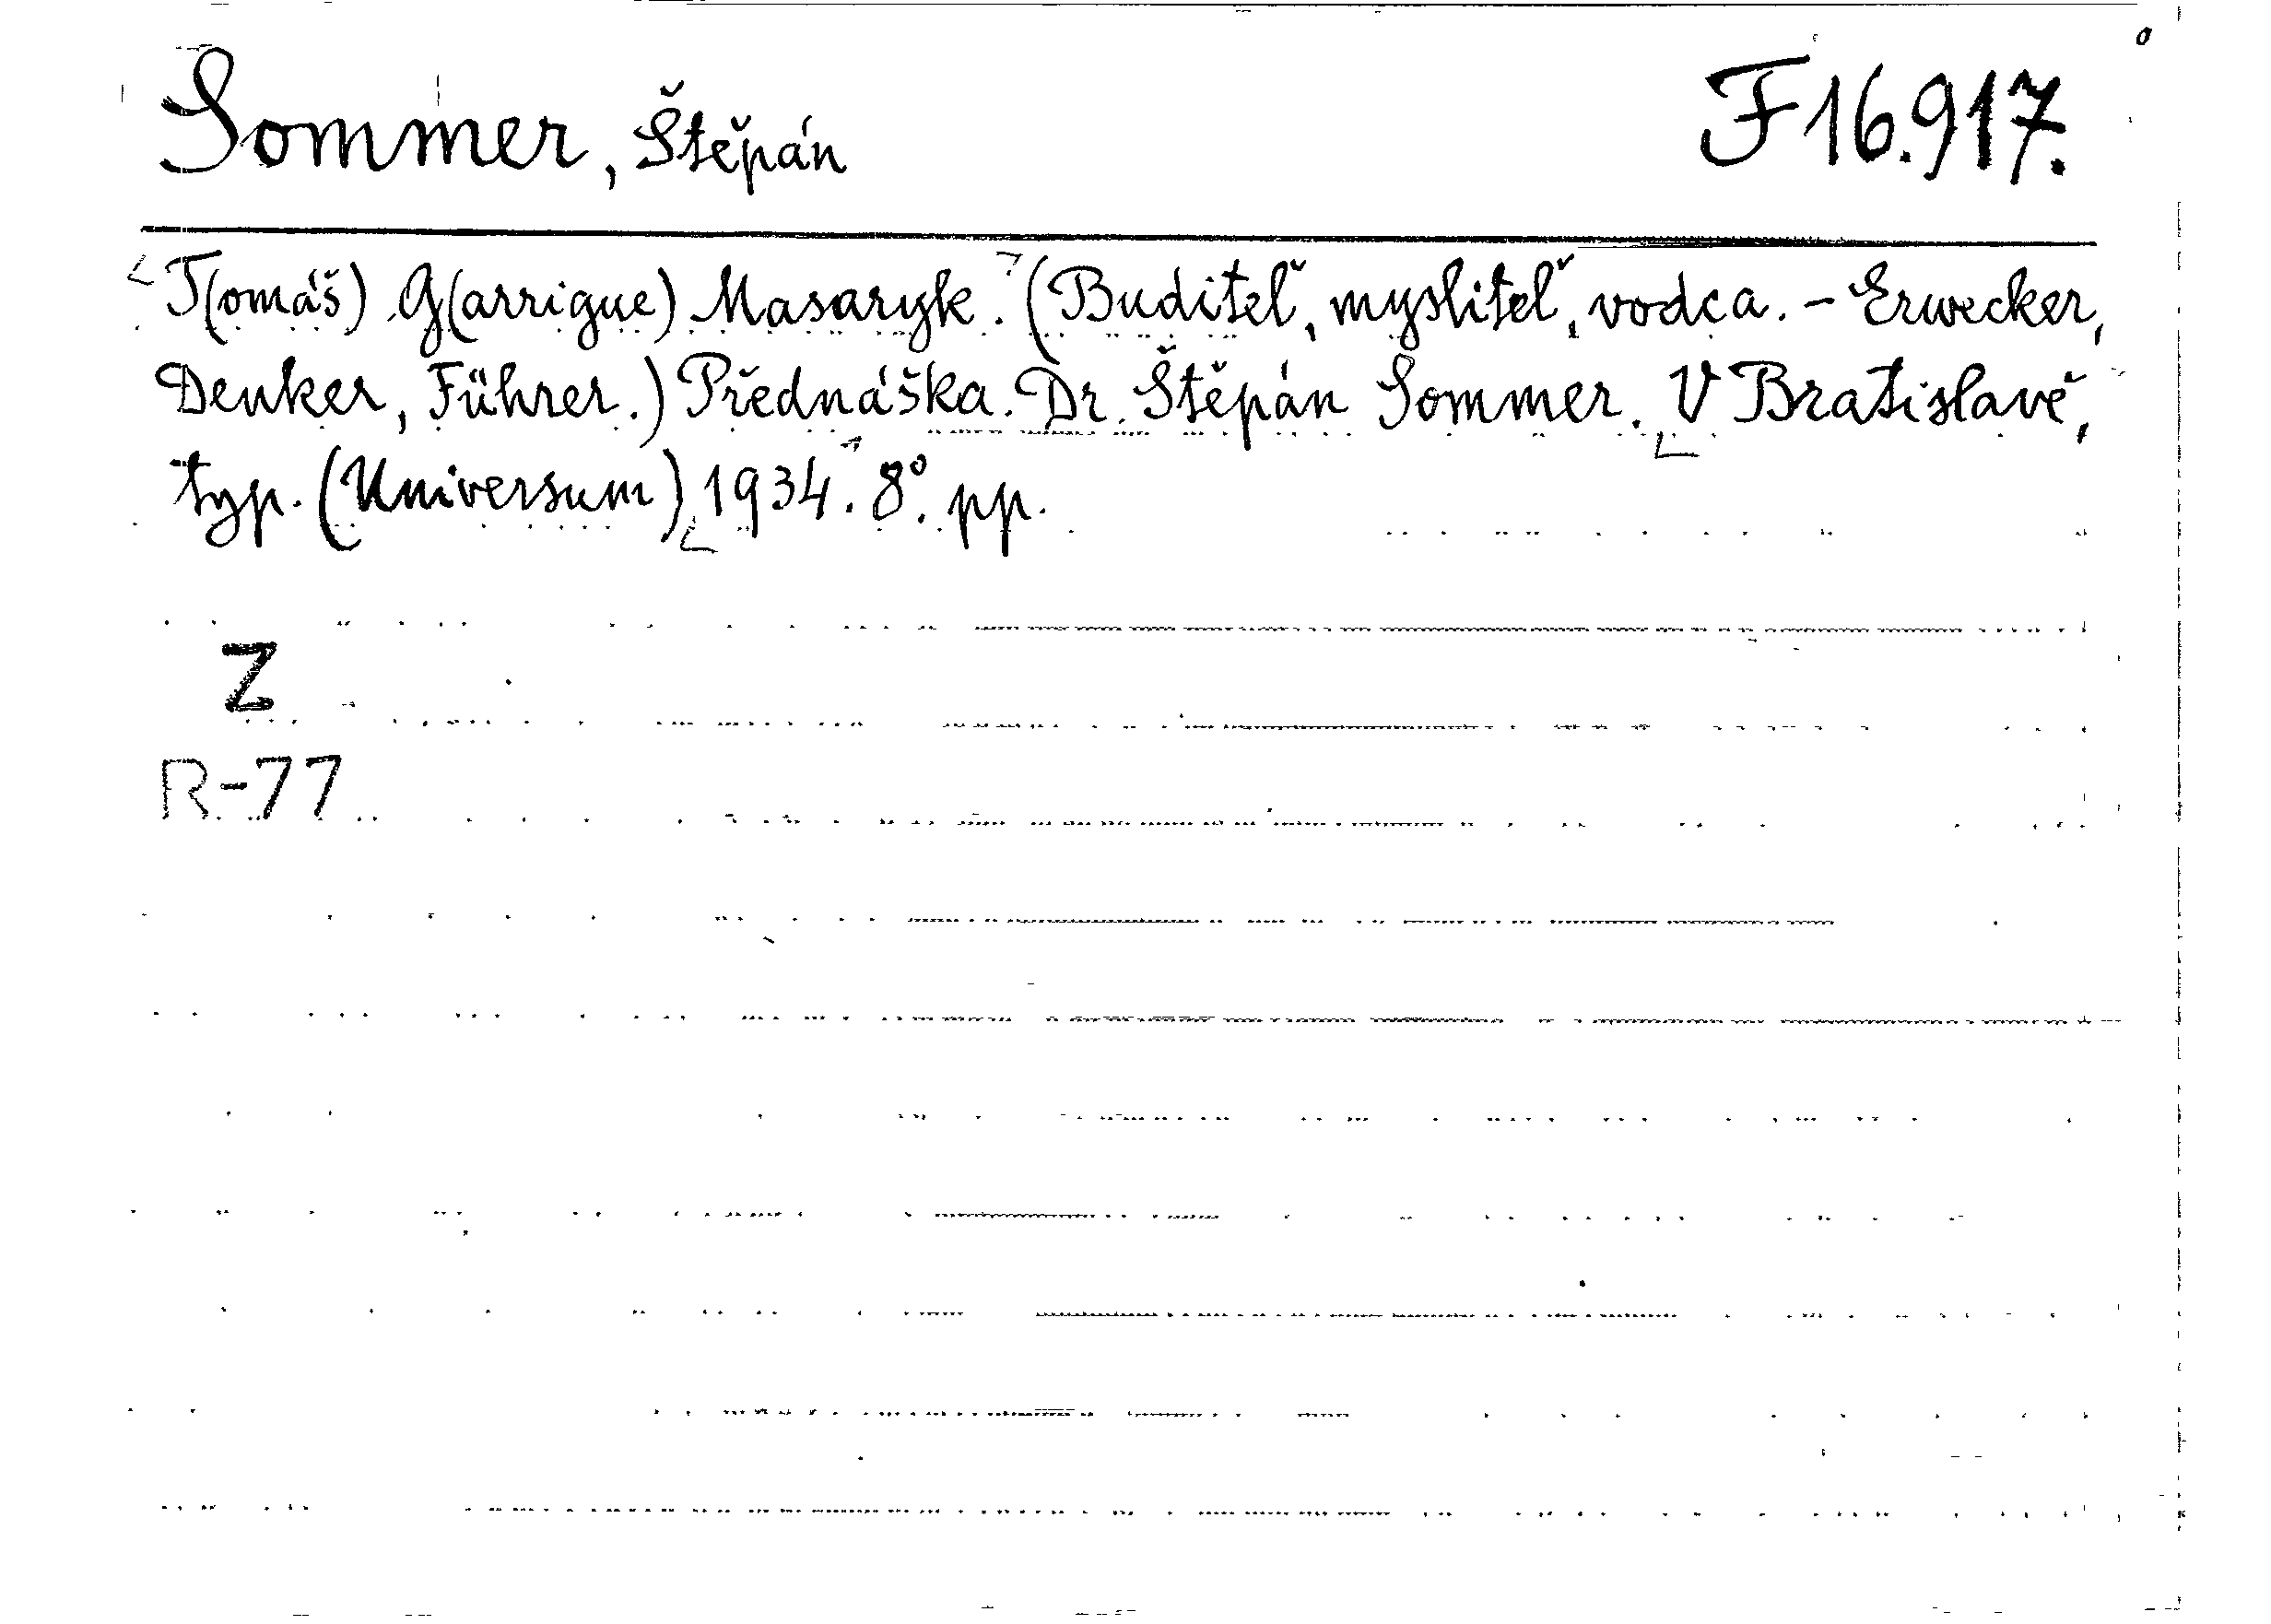 Sommer, Štěpán F 16.917.
T(omáš) G(arrigue) Masaryk. (Buditeľ, mysliteľ, vodca. - Erwecker,
Denker, Führer.) Přednáška. Dr. Štěpán Sommer. V Bratislavě,
typ. (Universum) 1934. 8° pp.
Z
R-77